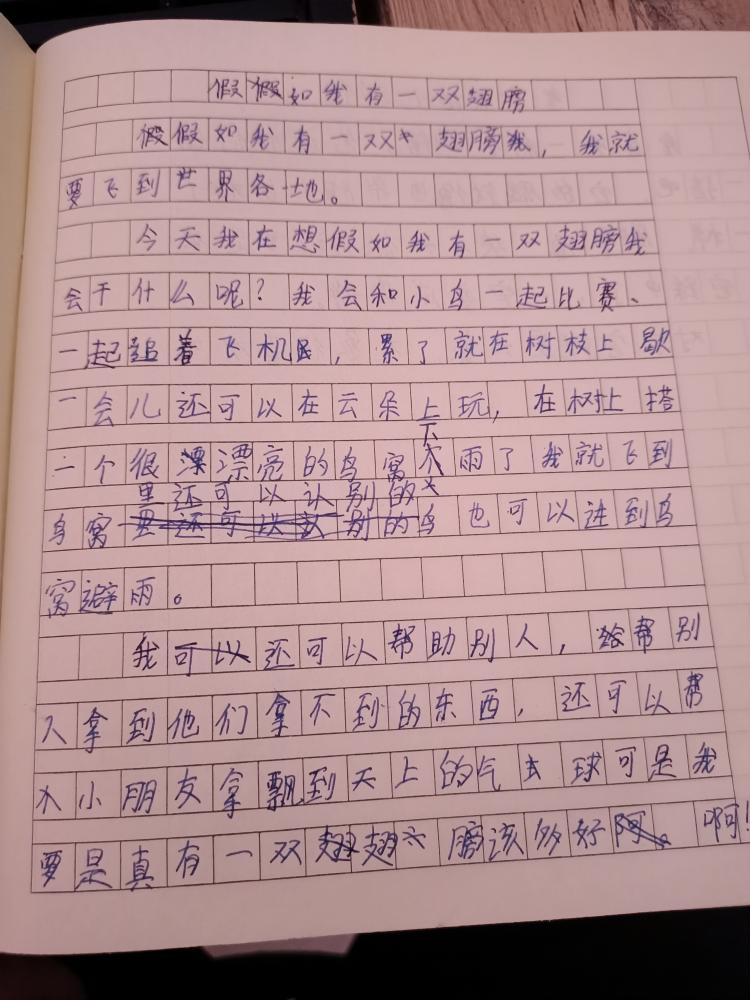 假如我有一双翅膀
假如我有一双翅膀,我就
要飞到世界各地。
今天我在想假如我有一双翅膀我
会干什么呢?我会和小鸟一起比赛、
一起追着飞机,累了就在树枝上歇
一会儿还可以在云朵上玩,在树上搭
一个很漂亮的鸟窝下雨了我就飞到
鸟窝里还可以认别的鸟也可以进到鸟
窝避雨。
我还可以帮助别人,帮别
人拿到他们拿不到的东西,还可以帮
小朋友拿飘到天上的气球可是我
要是真有一双翅膀该多好啊!